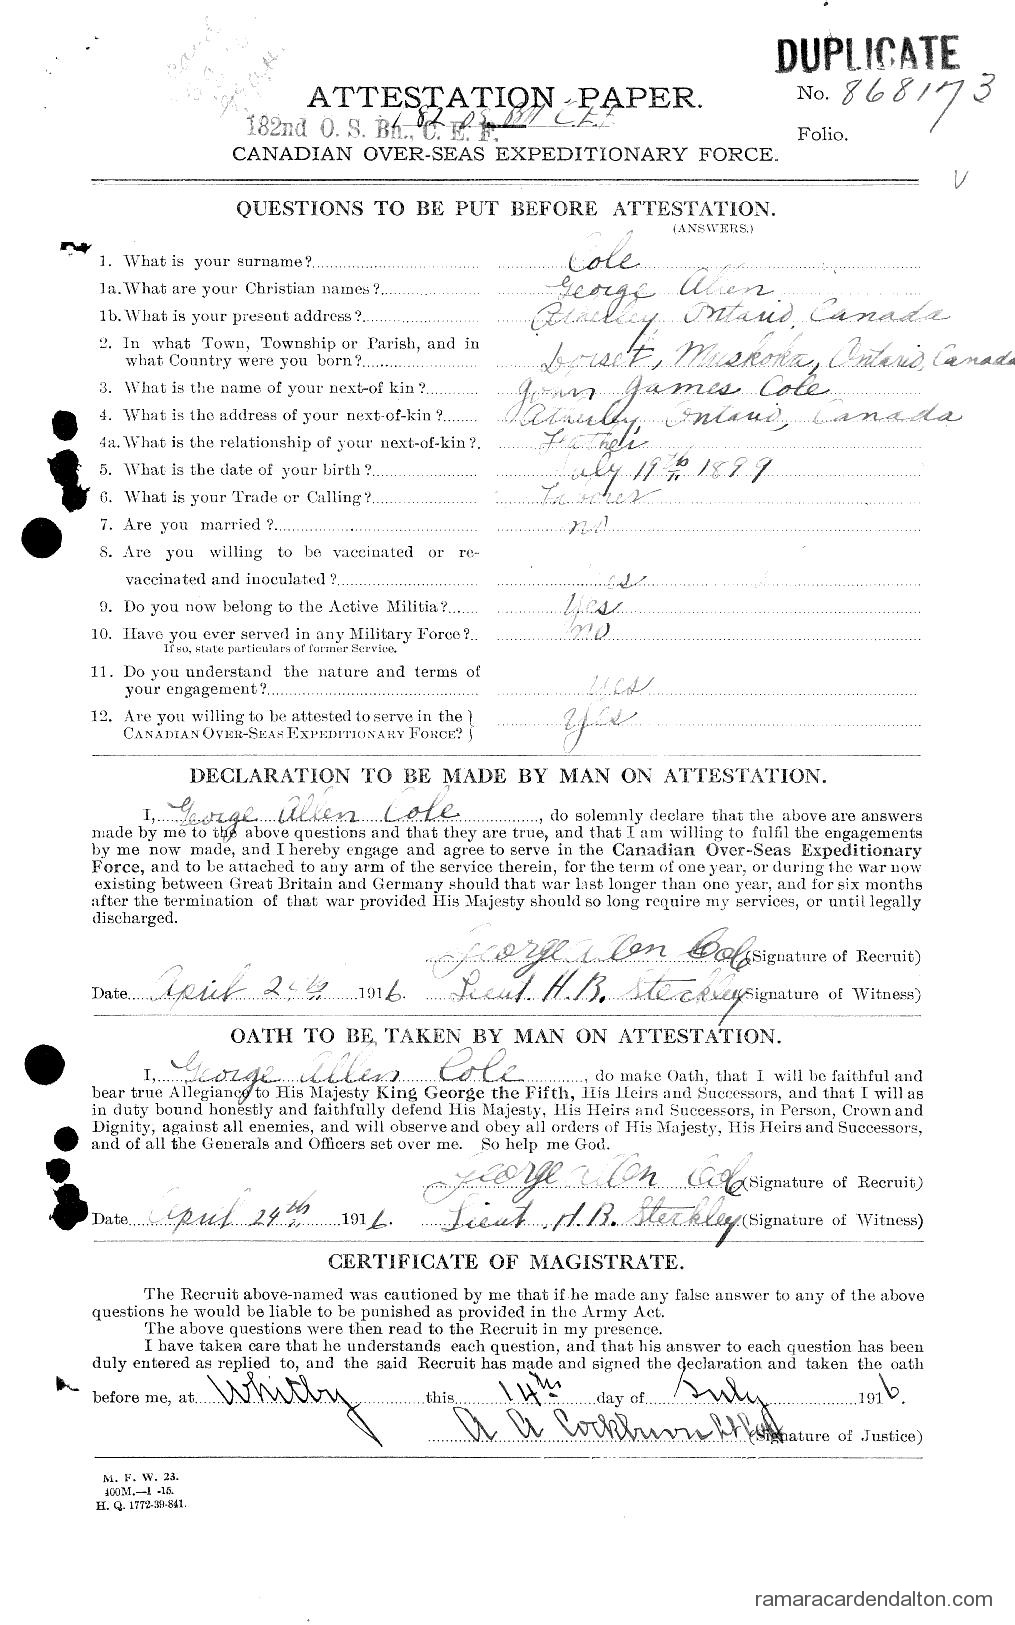 DUPLICATE
ATTESTATION PAPER.
No. 868173
182 O.S. Bn C.E.F.
182nd O. S. Bn., C. E. F.
Folio.
CANADIAN OVER-SEAS EXPEDITIONARY FORCE.
QUESTIONS TO BE PUT BEFORE ATTESTATION.
(ANSWERS.)
1. What is your surname? Cole
1a. What are your Christian names? George Allen
1b. What is your present address? Atherley, Ontario, Canada
2. In what Town, Township or Parish, and in
what Country were you born? Dorset, Muskoka, Ontario, Canada
3. What is the name of your next-of kin? John James Cole
4. What is the address of your next-of-kin? Atherley, Ontario, Canada
4a. What is the relationship of your next-of-kin? Father
5. What is the date of your birth? July 19th 1899
6. What is your Trade or Calling? Laborer
7. Are you married? no
8. Are you willing to be vaccinated or re-
vaccinated and inoculated? Yes
9. Do you now belong to the Active Militia? Yes
10. Have you ever served in any Military Force? no
If so, state particulars of former Service.
11. Do you understand the nature and terms of
your engagement? yes
12. Are you willing to be attested to serve in the
CANADIAN OVER-SEAS EXPEDITIONARY FORCE? } yes
DECLARATION TO BE MADE BY MAN ON ATTESTATION.
I, George Allen Cole, do solemnly declare that the above are answers
made by me to the above questions and that they are true, and that I am willing to fulfil the engagements
by me now made, and I hereby engage and agree to serve in the Canadian Over-Seas Expeditionary
Force, and to be attached to any arm of the service therein, for the term of one year, or during the war now
existing between Great Britain and Germany should that war last longer than one year, and for six months
after the termination of that war provided His Majesty should so long require my services, or until legally
discharged.
George Allen Cole (Signature of Recruit)
Date April 24th 1916 Lieut. H. B. Steckley (Signature of Witness)
OATH TO BE TAKEN BY MAN ON ATTESTATION.
I, George Allen Cole, do make Oath, that I will be faithful and
bear true Allegiance to His Majesty King George the Fifth, His Heirs and Successors, and that I will as
in duty bound honestly and faithfully defend His Majesty, His Heirs and Successors, in Person, Crown and
Dignity, against all enemies, and will observe and obey all orders of His Majesty, His Heirs and Successors,
and of all the Generals and Officers set over me. So help me God.
George Allen Cole (Signature of Recruit)
Date April 24th 1916. Lieut. H. B. Steckley (Signature of Witness)
CERTIFICATE OF MAGISTRATE.
The Recruit above-named was cautioned by me that if he made any false answer to any of the above
questions he would be liable to be punished as provided in the Army Act.
The above questions were then read to the Recruit in my presence.
I have taken care that he understands each question, and that his answer to each question has been
duly entered as replied to, and the said Recruit has made and signed the declaration and taken the oath
before me, at Whitby this 14th day of July 1916.
A A Cockburn Lt Col (Signature of Justice)
M. F. W. 23.
400M.—1 -15.
H. Q. 1772-39-841.
ramaracardendalton.com